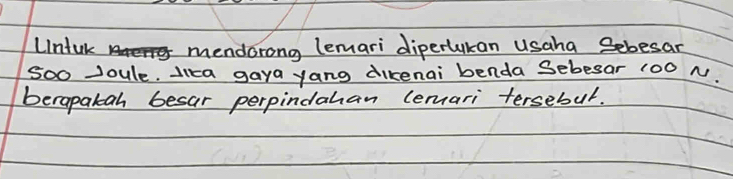 Untuk mendorong lemari diperlukan usaha Sebesar
500 Joule. Jika gaya yang dikenai benda Sebesar 100 N.
berapakah besar perpindahan lemari tersebut.